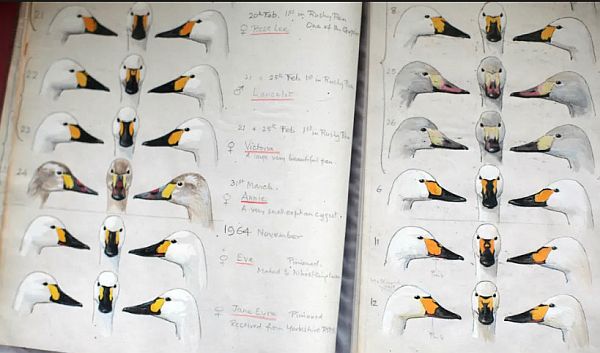 21
20th Feb. 1st in Rushy Pen
♀ Rose Lee. One of the
22
21 + 25th Feb 1st in Rushy Pen
♂ Lancelot
23
21 + 25th Feb 1st in Rushy Pen
♀ Victoria
A large very beautiful pen.
24
31st March.
♀ Annie
A very small cygnet.
1964 November
♀ Eve Pinioned.
Mated to
♀ Jane Eyre Pinioned
Received from Yorkshire
8
25
26
6
11
Pink
12
Pink